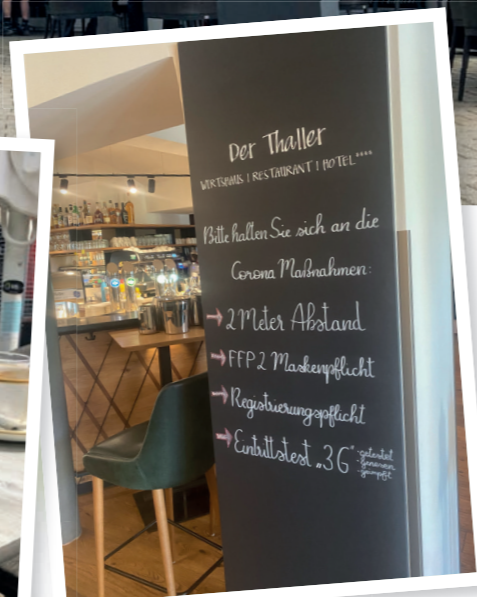 Der Thaller
WIRTSHAUS | RESTAURANT | HOTEL****
Bitte halten Sie sich an die
Corona Maßnahmen:
→ 2 Meter Abstand
→ FFP2 Maskenpflicht
→ Registrierungspflicht
→ Eintrittstest „3G"
-getestet
-genesen
-geimpft